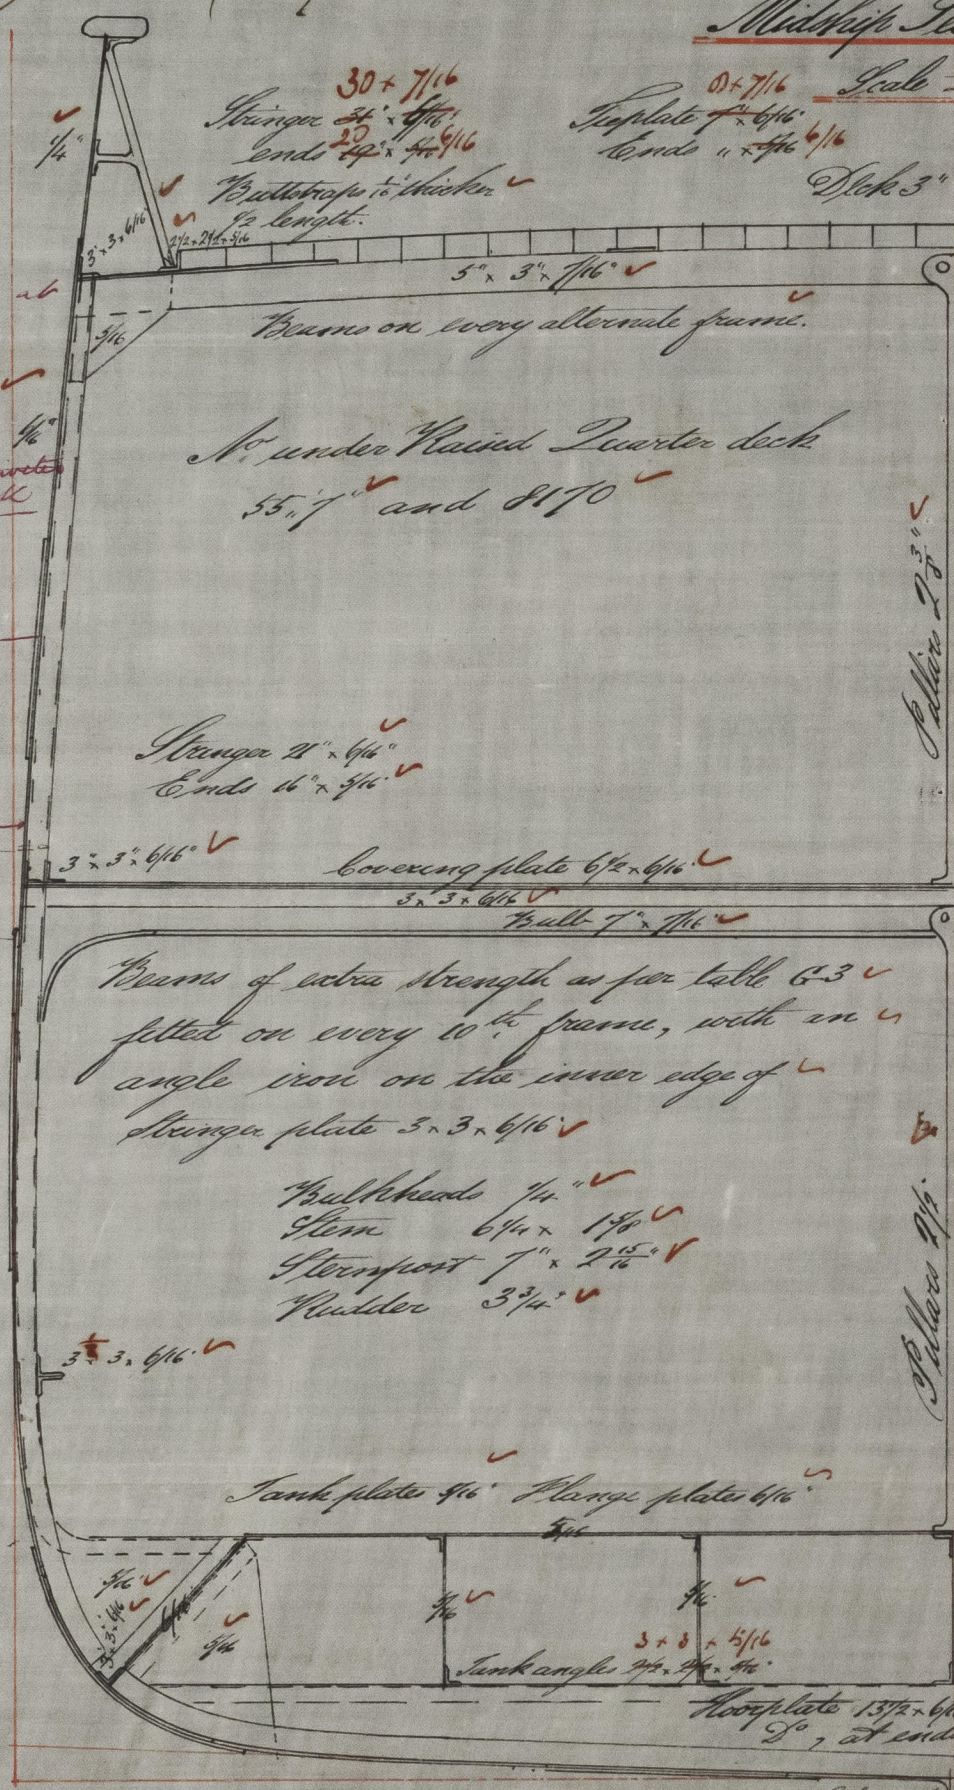 Midship
Scale =
30 x 7/16
Stringer 31" x 6/16"
20 6/16
ends 19" x 5/16
Buttstraps 1/16" thicker
1/2 length.
x 7/16
Tieplate 7" x 6/16"
6/16
Ends " x 5/16
Deck 3"
1/4"
3 x 3 x 6/16
2 1/2 x 2 1/2 x 5/16
5" x 3" x 7/16"
5/16
Beams on every alternate frame.
No. under Raised Quarter deck
55'.7" and 8170
Pillars 2 3/8"
Stringer 21" x 6/16"
Ends 16" x 5/16"
3" x 3" x 6/16"
Covering plate 6 1/2 x 6/16"
3 x 3 x 6/16
Bulb 7" x 7/16"
Beams of extra strength as per table G3
fitted on every 10th frame, with an
angle iron on the inner edge of
Stringer plate 3 x 3 x 6/16"
Bulkheads 1/4"
Stem 6 1/4 x 1 5/8
Sternpost 7" x 2 15/16"
Rudder 3 3/4"
Pillars 2 1/2"
3 x 3 x 6/16"
Tank plates 5/16" Flange plates 6/16"
5/16
5/16
3 x 3 x 6/16
6/16
5/16
5/16
5/16
3 x 3 x 5/16
Tank angles 2 1/2 x 2 1/2 x 5/16"
Floorplate 13 1/2 x 6/1
Do, at end